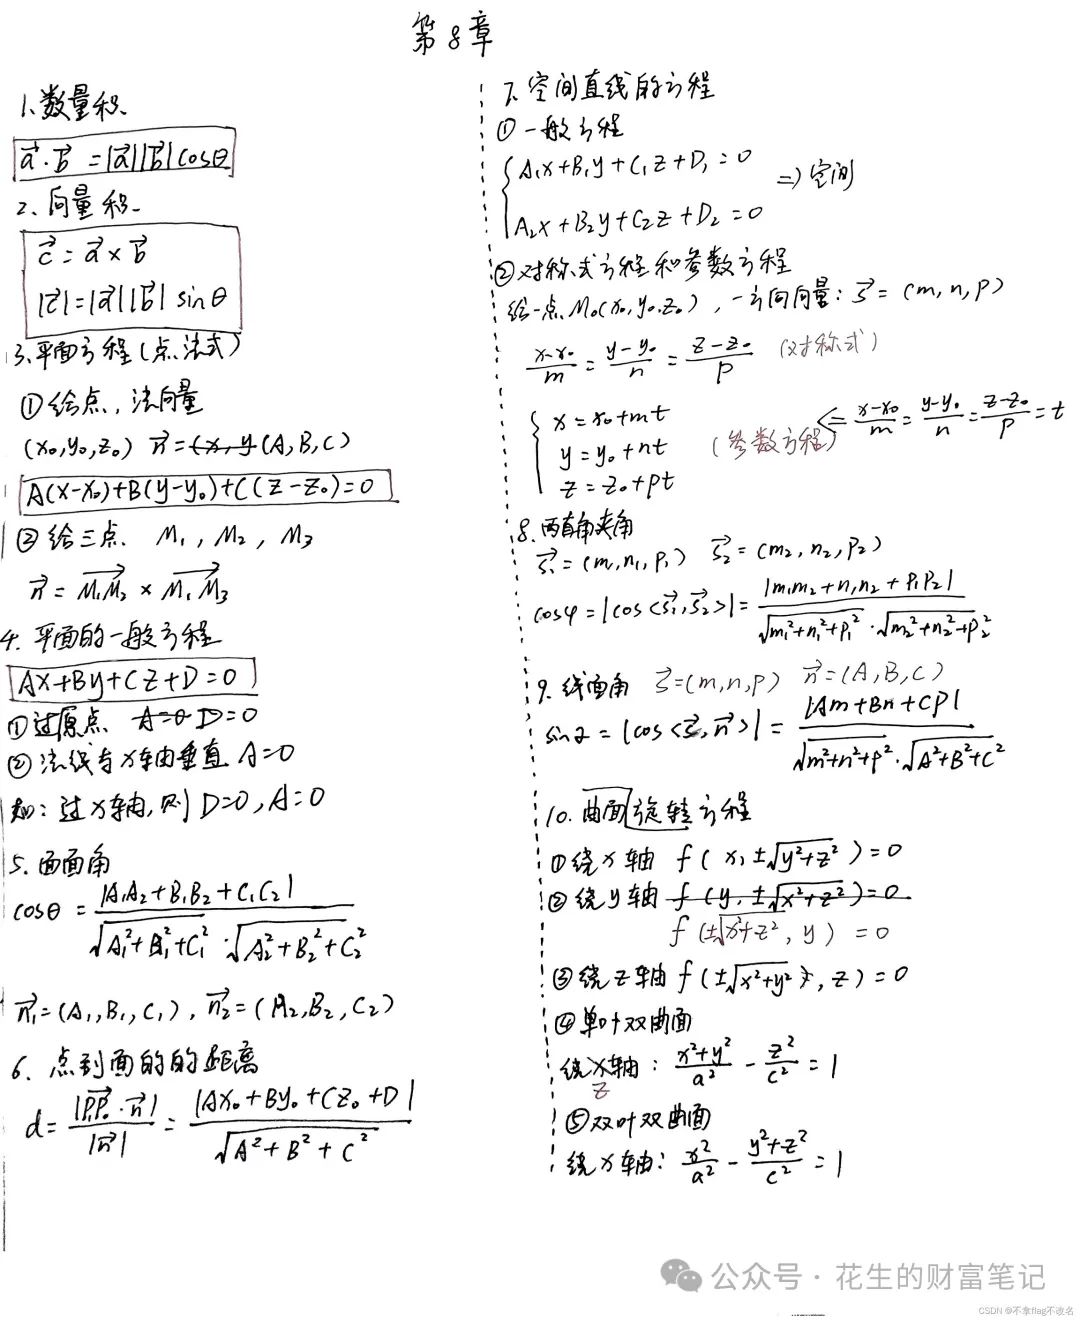 第8章
1.数量积.
a⃗·b⃗ =|a⃗||b⃗|cosθ
2、向量积.
c⃗=a⃗×b⃗
|c⃗|=|a⃗||b⃗| sinθ
3.平面方程(点法式)
①给点,法向量
(x₀,y₀,z₀) n⃗=(x,y(A,B,C)
A(x-x₀)+B(y-y₀)+C(z-z₀)=0
②给三点. M₁,M₂,M₃
n⃗=M₁M₂×M₁M₃
4.平面的一般方程
Ax+By+Cz+D=0
①过原点 A=0 D=0
②法线与x轴垂直 A=0
如:过x轴,则D=0,A=0
5.面面角
cosθ=|A₁A₂+B₁B₂+C₁C₂|/(√(A₁²+B₁²+C₁²)·√(A₂²+B₂²+C₂²))
n₁=(A₁,B₁,C₁),n₂=(A₂,B₂,C₂)
6.点到面的的距离
d=|P₁P₀·n⃗|/|n⃗|=|Ax₀+By₀+Cz₀+D|/√(A²+B²+C²)
7.空间直线的方程
①一般方程
A₁x+B₁y+C₁z+D₁=0
=>空间
A₂x+B₂y+C₂z+D₂=0
②对称式方程和参数方程
给一点M₀(x₀,y₀,z₀),一方向向量:s⃗=(m,n,p)
(x-x₀)/m=(y-y₀)/n=(z-z₀)/p (对称式)
x=x₀+mt
<=(x-x₀)/m=(y-y₀)/n=(z-z₀)/p=t
y=y₀+nt (参数方程)
z=z₀+pt
8.两直角夹角
s₁=(m₁,n₁,p₁) s₂=(m₂,n₂,p₂)
cosφ=|cos<s₁,s₂>|=|m₁m₂+n₁n₂+p₁p₂|/(√(m₁²+n₁²+p₁²)·√(m₂²+n₂²+p₂²))
9.线面角 s⃗=(m,n,p) n⃗=(A,B,C)
sin2=|cos<s⃗,n⃗>|=|Am+Bn+Cp|/(√(m²+n²+p²)·√(A²+B²+C²))
10.曲面旋转方程
①绕x轴 f(x,±√(y²+z²))=0
②绕y轴 f(y,±√(x²+z²))=0
f(±√(x²+z²),y)=0
③绕z轴f(±√(x²+y²),z)=0
④单叶双曲面
绕x轴:(x²+y²)/a²-z²/c²=1
z
⑤双叶双曲面
绕x轴:x²/a²-(y²+z²)/c²=1
公众号·花生的财富笔记
CSDN @不拿flag不改名